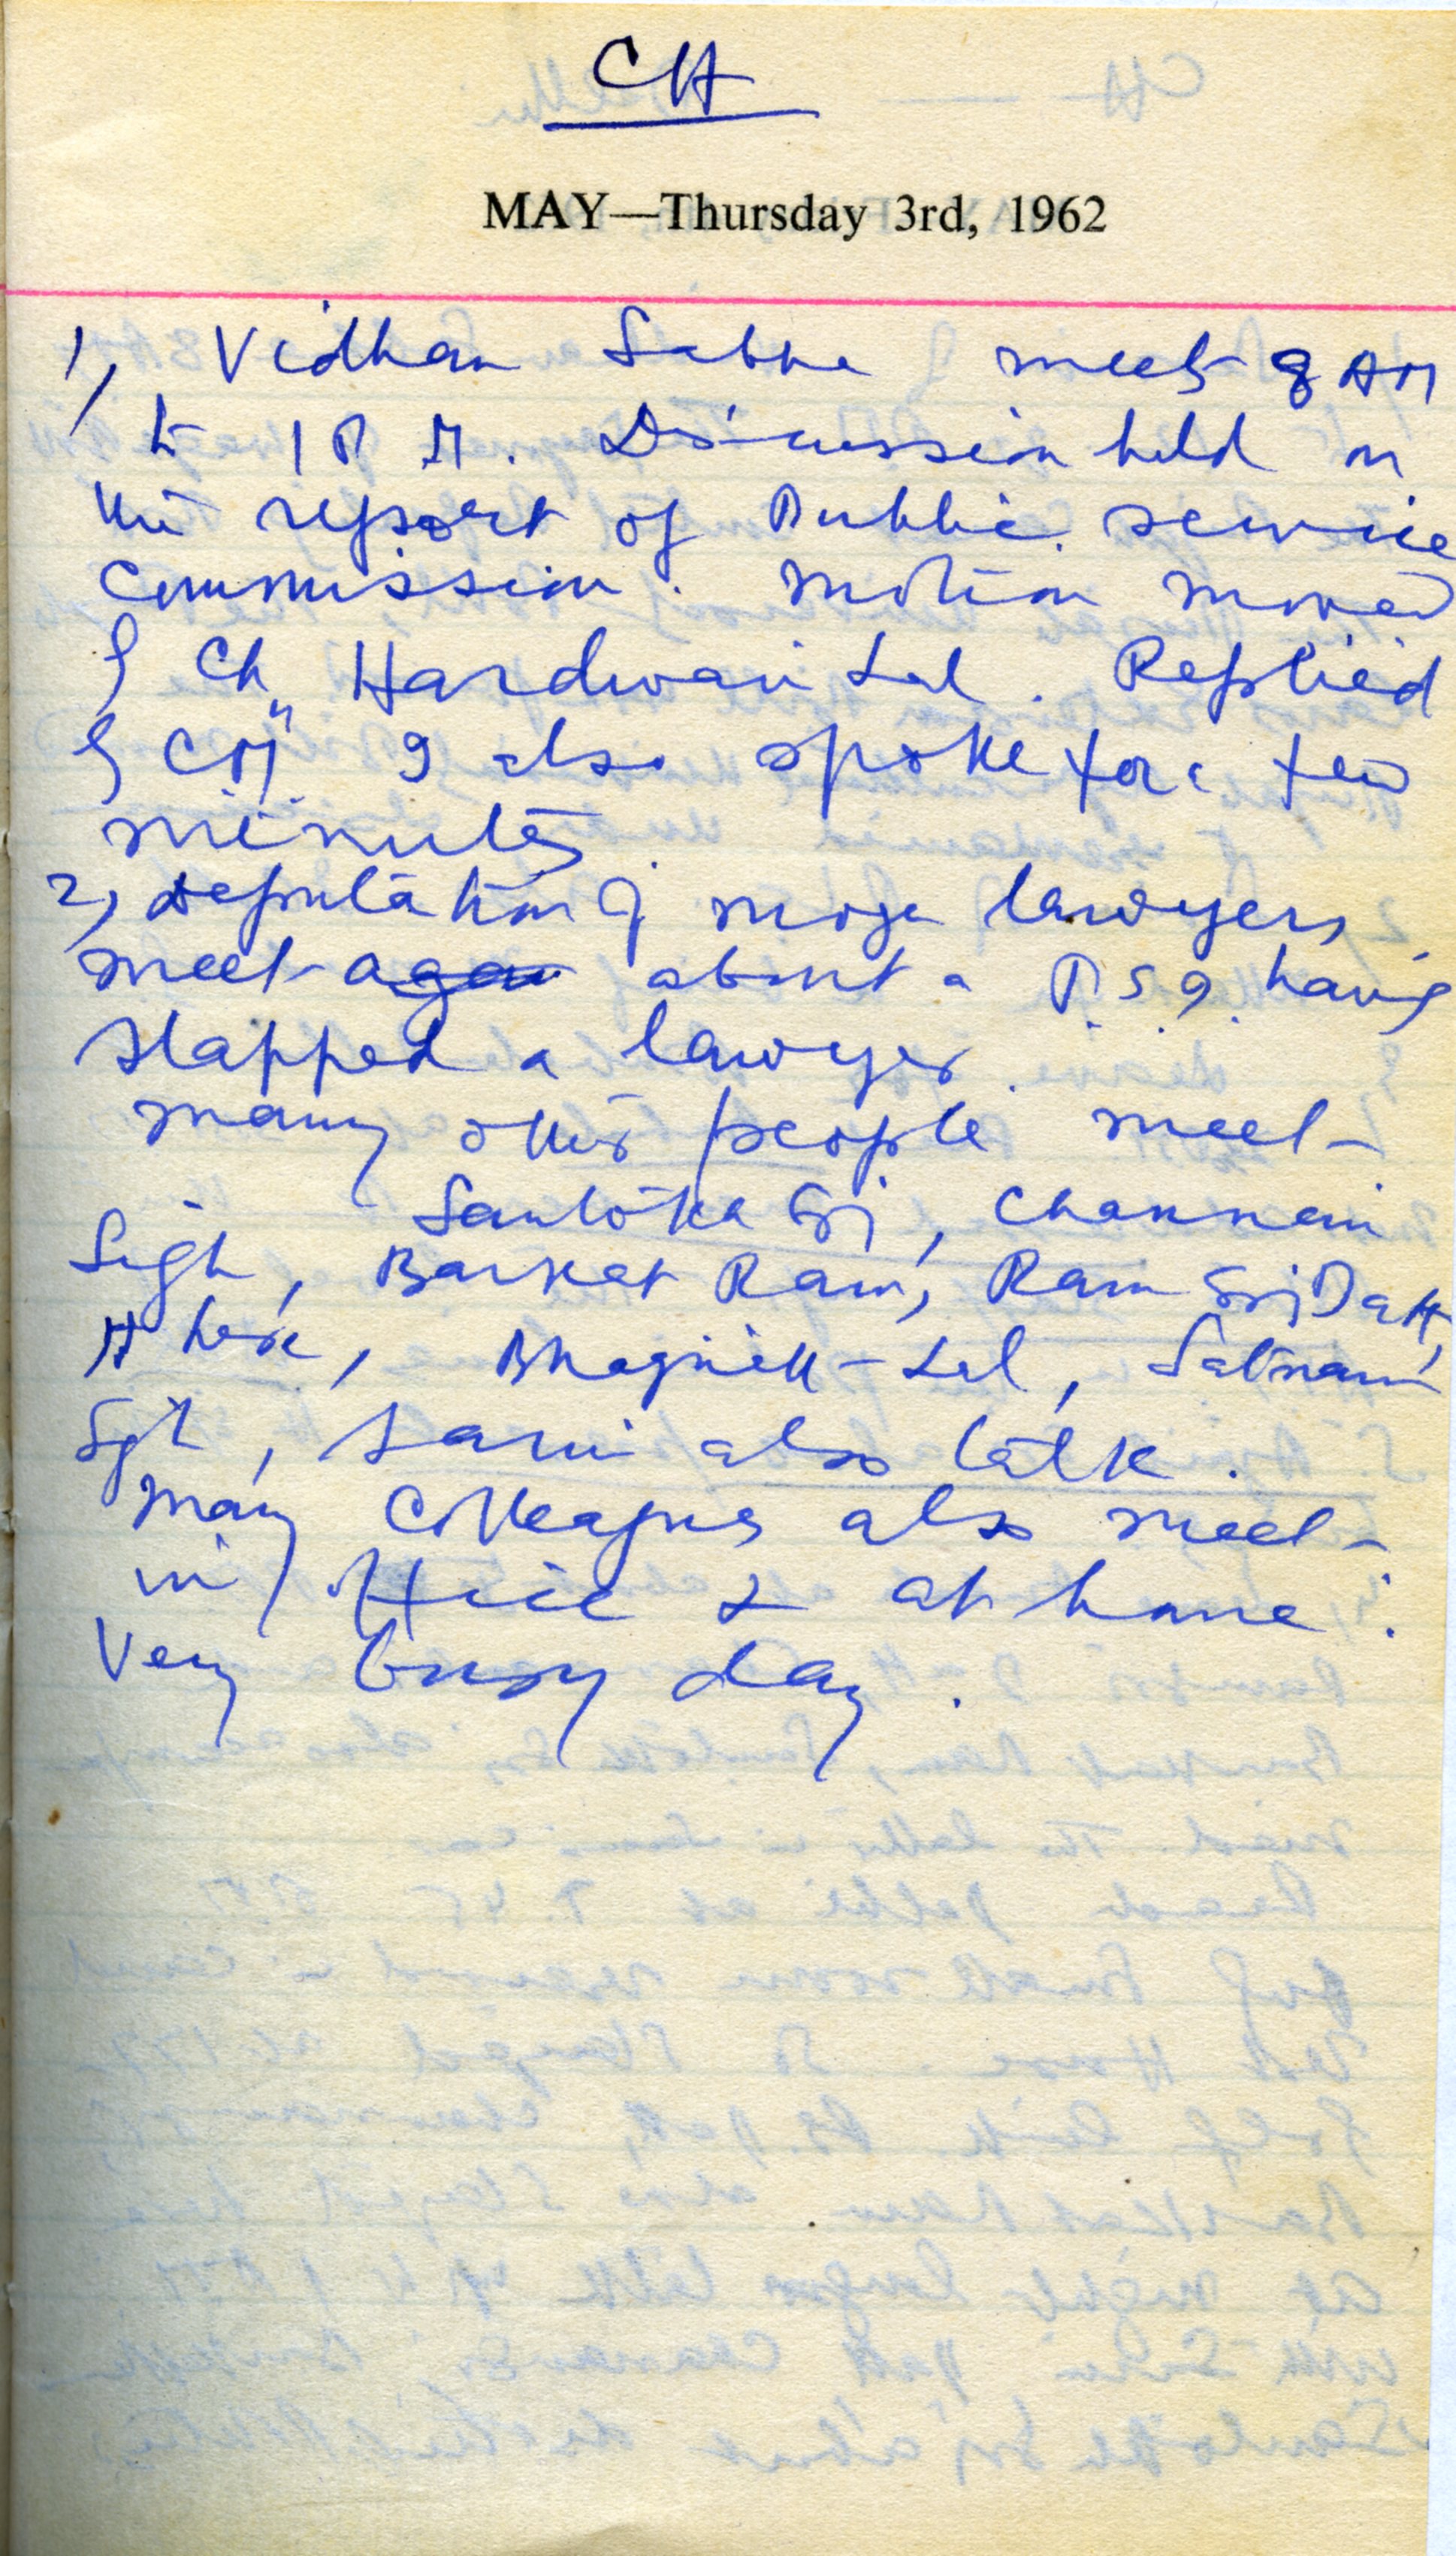 CH
MAY—Thursday 3rd, 1962
1) Vidhan Sabha meet 8 AM
to 1 P.M. Discussion held on
the report of Public service
Commission. Motion moved
by Ch. Hardwari Lal. Replied
by CM. I also spoke for a few
minutes.
2) Deputation of moga lawyers
meet again about a P.S.I. having
slapped a lawyer.
many other people meet
Santokh Sgj, Channan
Sigh, Barket Ram, Ram Sgj Datt,
here, Bhagirath Lal, Satnam
Sgh, Saini also talk.
Many Colleagues also meet
in office & at home.
Very busy day.